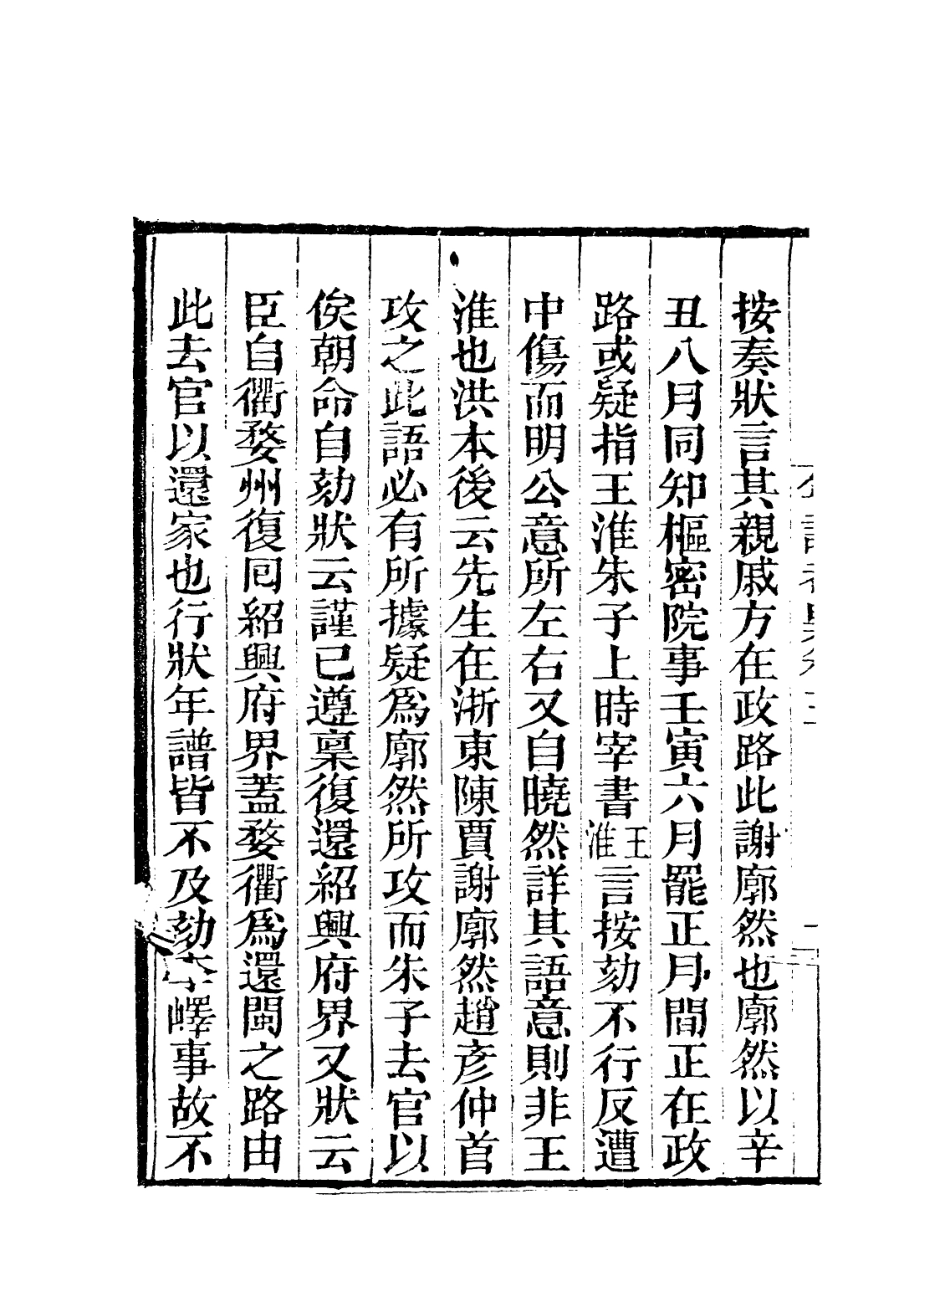 按奏狀言其親戚方在政路此謝廓然也廓然以辛
丑八月同知樞密院事壬寅六月罷正月間正在政
路或疑指王淮朱子上時宰書王淮言按劾不行反遭
中傷而明公意所左右又自曉然詳其語意則非王
淮也洪本後云先生在浙東陳賈謝廓然趙彥仲首
攻之此語必有所據疑爲廓然所攻而朱子去官以
俟朝命自劾狀云謹已遵稟復還紹興府界又狀云
臣自衢婺州復囘紹興府界蓋婺衢爲還閩之路由
此去官以還家也行狀年譜皆不及劾李嶧事故不